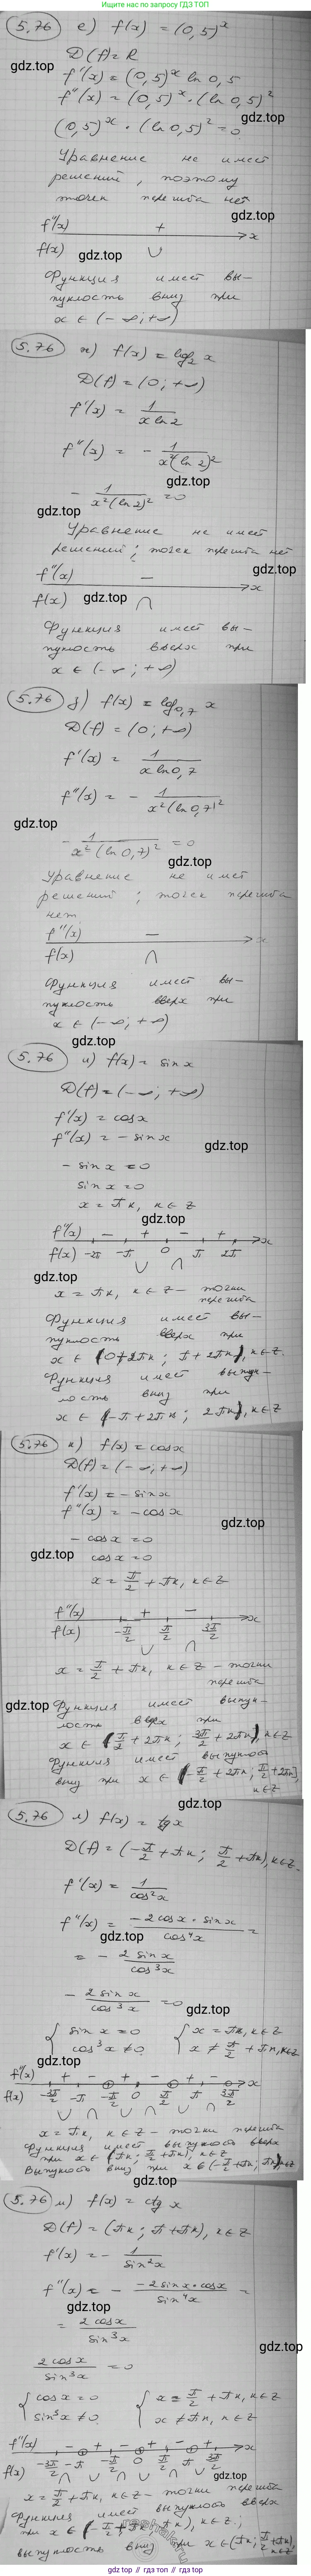 Больше решений на gdz.top
5.76 е) f(x) = (0,5)^x
D(f) = R
gdz.top
f'(x) = (0,5)^x ln 0,5
f''(x) = (0,5)^x · (ln 0,5)^2
gdz.top
(0,5)^x · (ln 0,5)^2 = 0
Уравнение не имеет
решений, поэтому
точек перегиба нет
gdz.top
f''(x) + x
f(x) gdz.top ∪
Функция имеет вы-
пуклость вниз при
x ∈ (-∞; +∞)
5.76 ж) f(x) = log_2 x
D(f) = (0; +∞)
f'(x) = 1/(x ln 2)
f''(x) = - 1/(x^2 (ln 2)^2
gdz.top
- 1/(x^2 (ln 2)^2) = 0
gdz.top
Уравнение не имеет
решений; точек перегиба нет
gdz.top
f''(x) - x
f(x) gdz.top ∩
Функция имеет вы-
пуклость вверх при
x ∈ (-∞; +∞)
5.76 з) f(x) = log_0,7 x
D(f) = (0; +∞)
f'(x) = 1/(x ln 0,7)
f''(x) = - 1/(x^2 (ln 0,7)^2
gdz.top
- 1/(x^2 (ln 0,7)^2) = 0
gdz.top
Уравнение не имет
решений; точек перегиба
нет
f''(x) - x
f(x) ∩
Функция имеет вы-
пуклость вверх при
x ∈ (-∞; +∞)
gdz.top
5.76 и) f(x) = sin x
D(f) = (-∞; +∞)
f'(x) = cos x
f''(x) = - sin x
gdz.top
- sin x = 0
sin x = 0
x = πk, k ∈ Z
gdz.top
f''(x) - + - + x
f(x) -2π -π 0 π 2π
∪ ∩
gdz.top
x = πk, k ∈ Z - точки
перегиба
Функция имеет вы-
пуклость вверх при
x ∈ (0+2πk; π+2πk), k ∈ Z.
Функция имеет выпук-
лость вниз при
x ∈ (-π+2πk; 2πk), k ∈ Z
5.76 к) f(x) = cos x
D(f) = (-∞, +∞)
f'(x) = - sin x
f''(x) = - cos x
gdz.top
- cos x = 0
gdz.top
cos x = 0
x = π/2 + πk, k ∈ Z
f''(x) + - x
f(x) -π/2 π/2 3π/2
∪ ∩
x = π/2 + πk, k ∈ Z - точки
перегиба
gdz.top
Функция имеет выпук-
лость вверх при
x ∈ (π/2 + 2πk; 3π/2 + 2πk), k ∈ Z
Функция имеет выпуклость
вниз при x ∈ (-π/2 + 2πk; π/2 + 2πk],
k ∈ Z
gdz.top
5.76 л) f(x) = tg x
D(f) = (-π/2 + πk; π/2 + πk), k ∈ Z.
f'(x) = 1/cos^2 x
f''(x) = -2cos x · sin x / cos^4 x =
gdz.top
= - 2 sin x / cos^3 x
- 2 sin x / cos^3 x = 0
gdz.top
{ sin x = 0 { x = πk, k ∈ Z
cos^3 x ≠ 0 x ≠ π/2 + πk, k ∈ Z
gdz.top
f''(x) + - + - + - x
f(x) -3π/2 -π -π/2 0 π/2 π 3π/2
∪ ∩ ∪ ∩ ∪ ∩
x = πk, k ∈ Z - точки перегиба
Функция имеет выпуклость вверх
при x ∈ (πk; π/2 + πk), k ∈ Z
Выпуклость вниз при x ∈ (-π/2 + πk; πk), k ∈ Z
gdz.top
5.76 м) f(x) = ctg x
D(f) = (πk; π + πk), k ∈ Z
f'(x) = - 1/sin^2 x
f''(x) = - -2 sin x · cos x / sin^4 x =
gdz.top
= 2 cos x / sin^3 x
gdz.top
2 cos x / sin^3 x = 0
{ cos x = 0 { x = π/2 + πk, k ∈ Z
sin^3 x ≠ 0 x ≠ πk, k ∈ Z
f''(x) - + - + - + x
f(x) -3π/2 -π -π/2 0 π/2 π 3π/2
∩ ∪ ∩ ∪ ∩ ∪ gdz.top
x = π/2 + πk, k ∈ Z - точки перегиба
Функция имеет выпуклость вверх
при x ∈ (-π/2 + πk; πk), k ∈ Z;
выпуклость вниз при x ∈ (πk; π/2 + πk),
k ∈ Z
gdz top // гдз топ // gdz.top